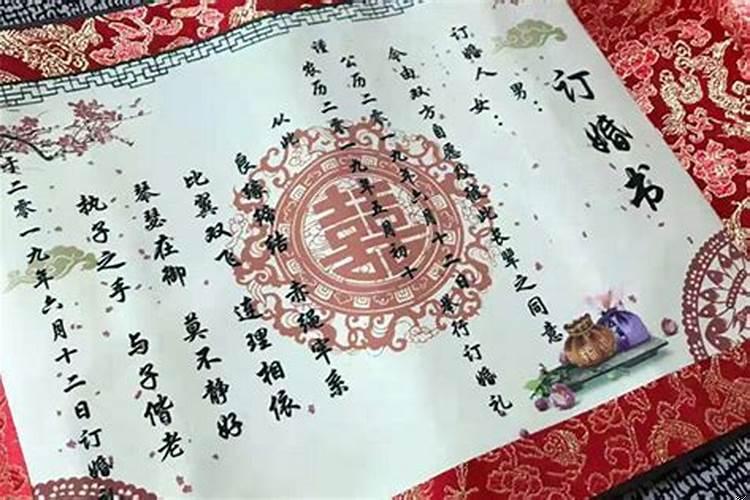 订婚书
订婚人 男：
女：
今由双方自愿及彼此长辈之同意
谨
公历二零一九年六月十二日举行订婚礼
农历二零一九年五月初十
从此
良缘缔结 赤绳牢系
比翼双飞 连理相依
琴瑟在御 莫不静好
执子之手 与子偕老
于二零一九年六月十二日订婚
囍